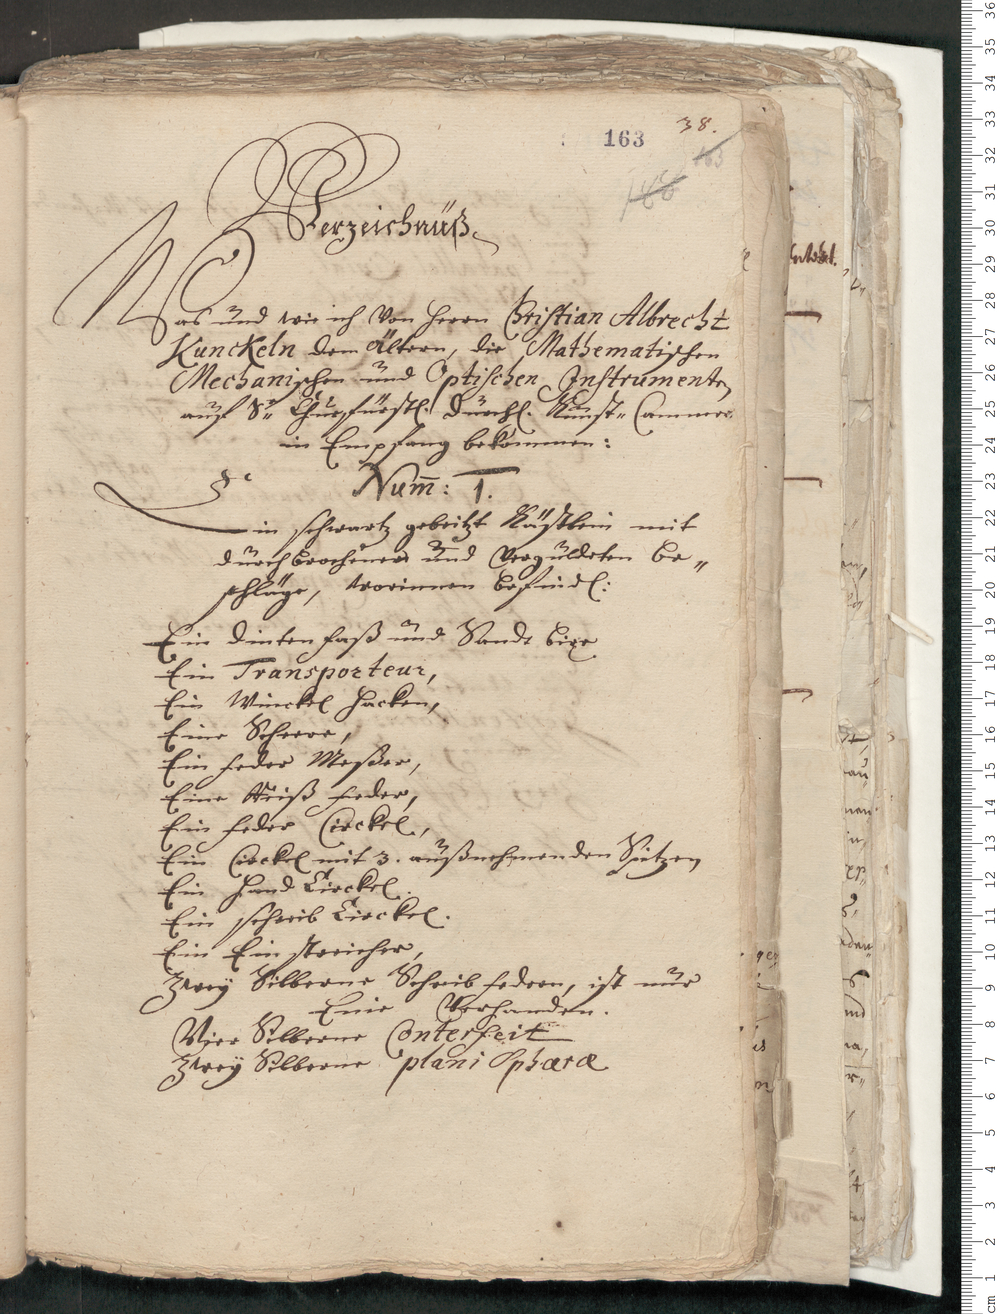 163
38.
163
166
Verzeichnüß.
Was und wie ich von Herrn Christian Albrecht
Kunckeln dem Ältern, die Mathematischen
Mechanischen und Optischen Instrumenta,
auf Sr. Churfürstl. Durchl. Kunst-Cammer
in Empfang bekommen:
Num̄: 1.
Ein schwartz gebeitzt Kästlein mit
durchbrochenen und verguldeten Be-
schläge, worinnen befindl:
Ein Dinten faß und Sandt bixe
Ein Transporteur,
Ein Winckel hacken,
Eine Scheere,
Ein feder Meßer,
Eine Reiß feder,
Ein feder Circkel,
Ein Circkel mit 3. außnehmenden Spitzen
Ein Hand Circkel.
Ein schreib Circkel.
Ein Einstreicher,
Zwey Silberne Schreib federn, ist nur
Eine Verhanden.
Vier Silberne Conterfeit
Zwey Silberne plani Sphæræ